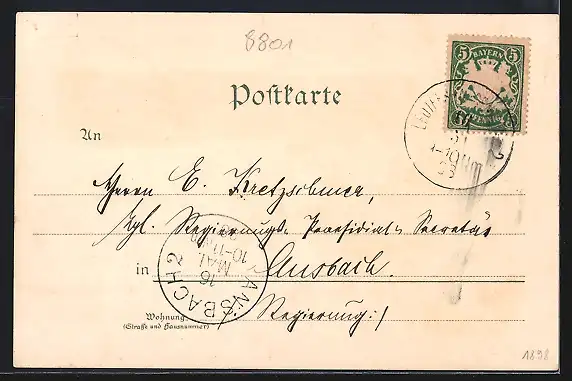 8801
5 BAYERN 5
PFENNIG
Postkarte
An
Herrn E. Kretzschmer,
kgl. Regierungs-Praesidial-Secretär
in Ansbach.
/: Regierung :/
Wohnung
(Straße und Hausnummer)
ANSBACH 2
16
MAI
10-11
1898